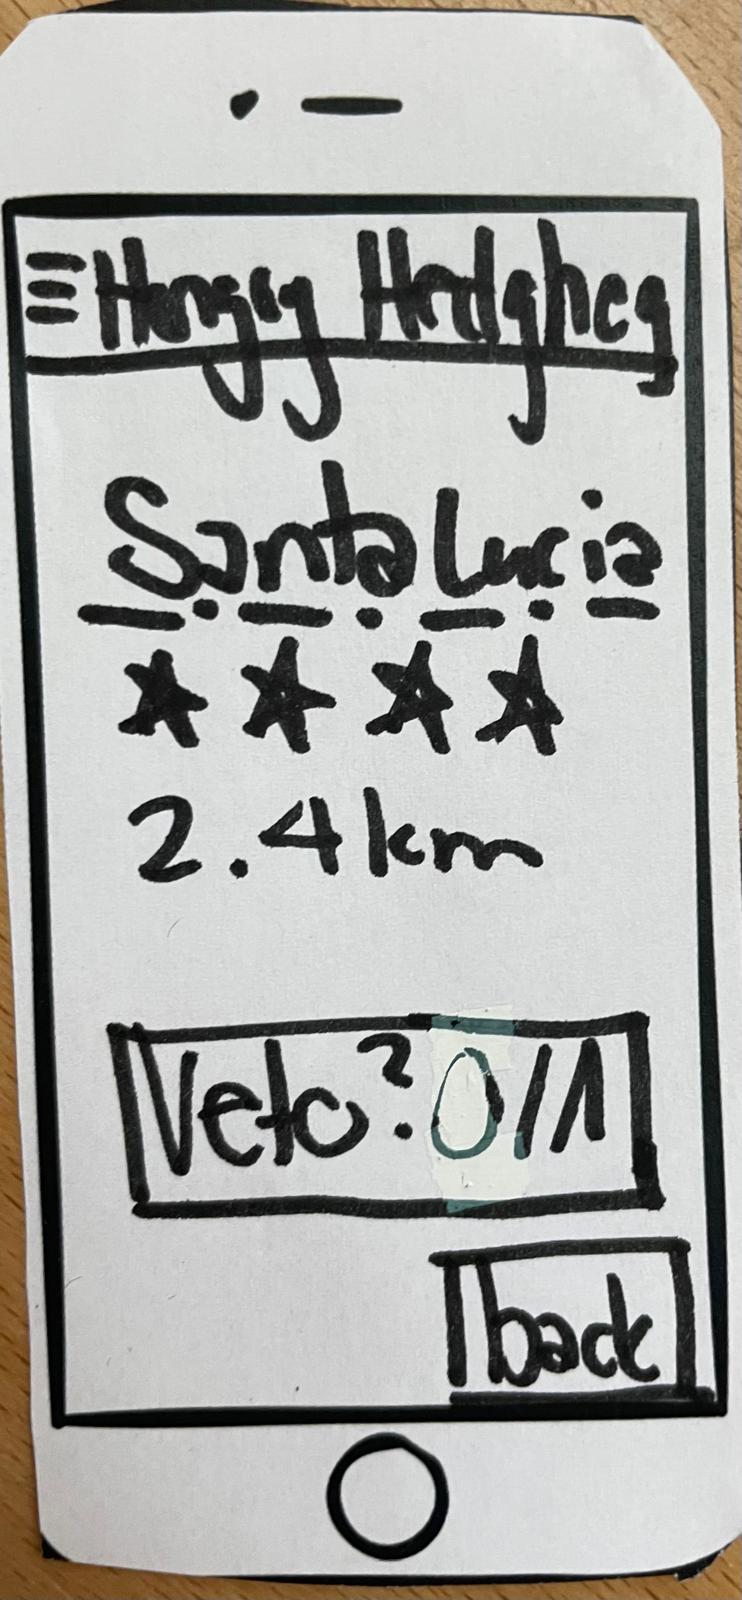 Hungry Hedgheg
Santa Lucia
2.4 km
Veto? 0/1
back